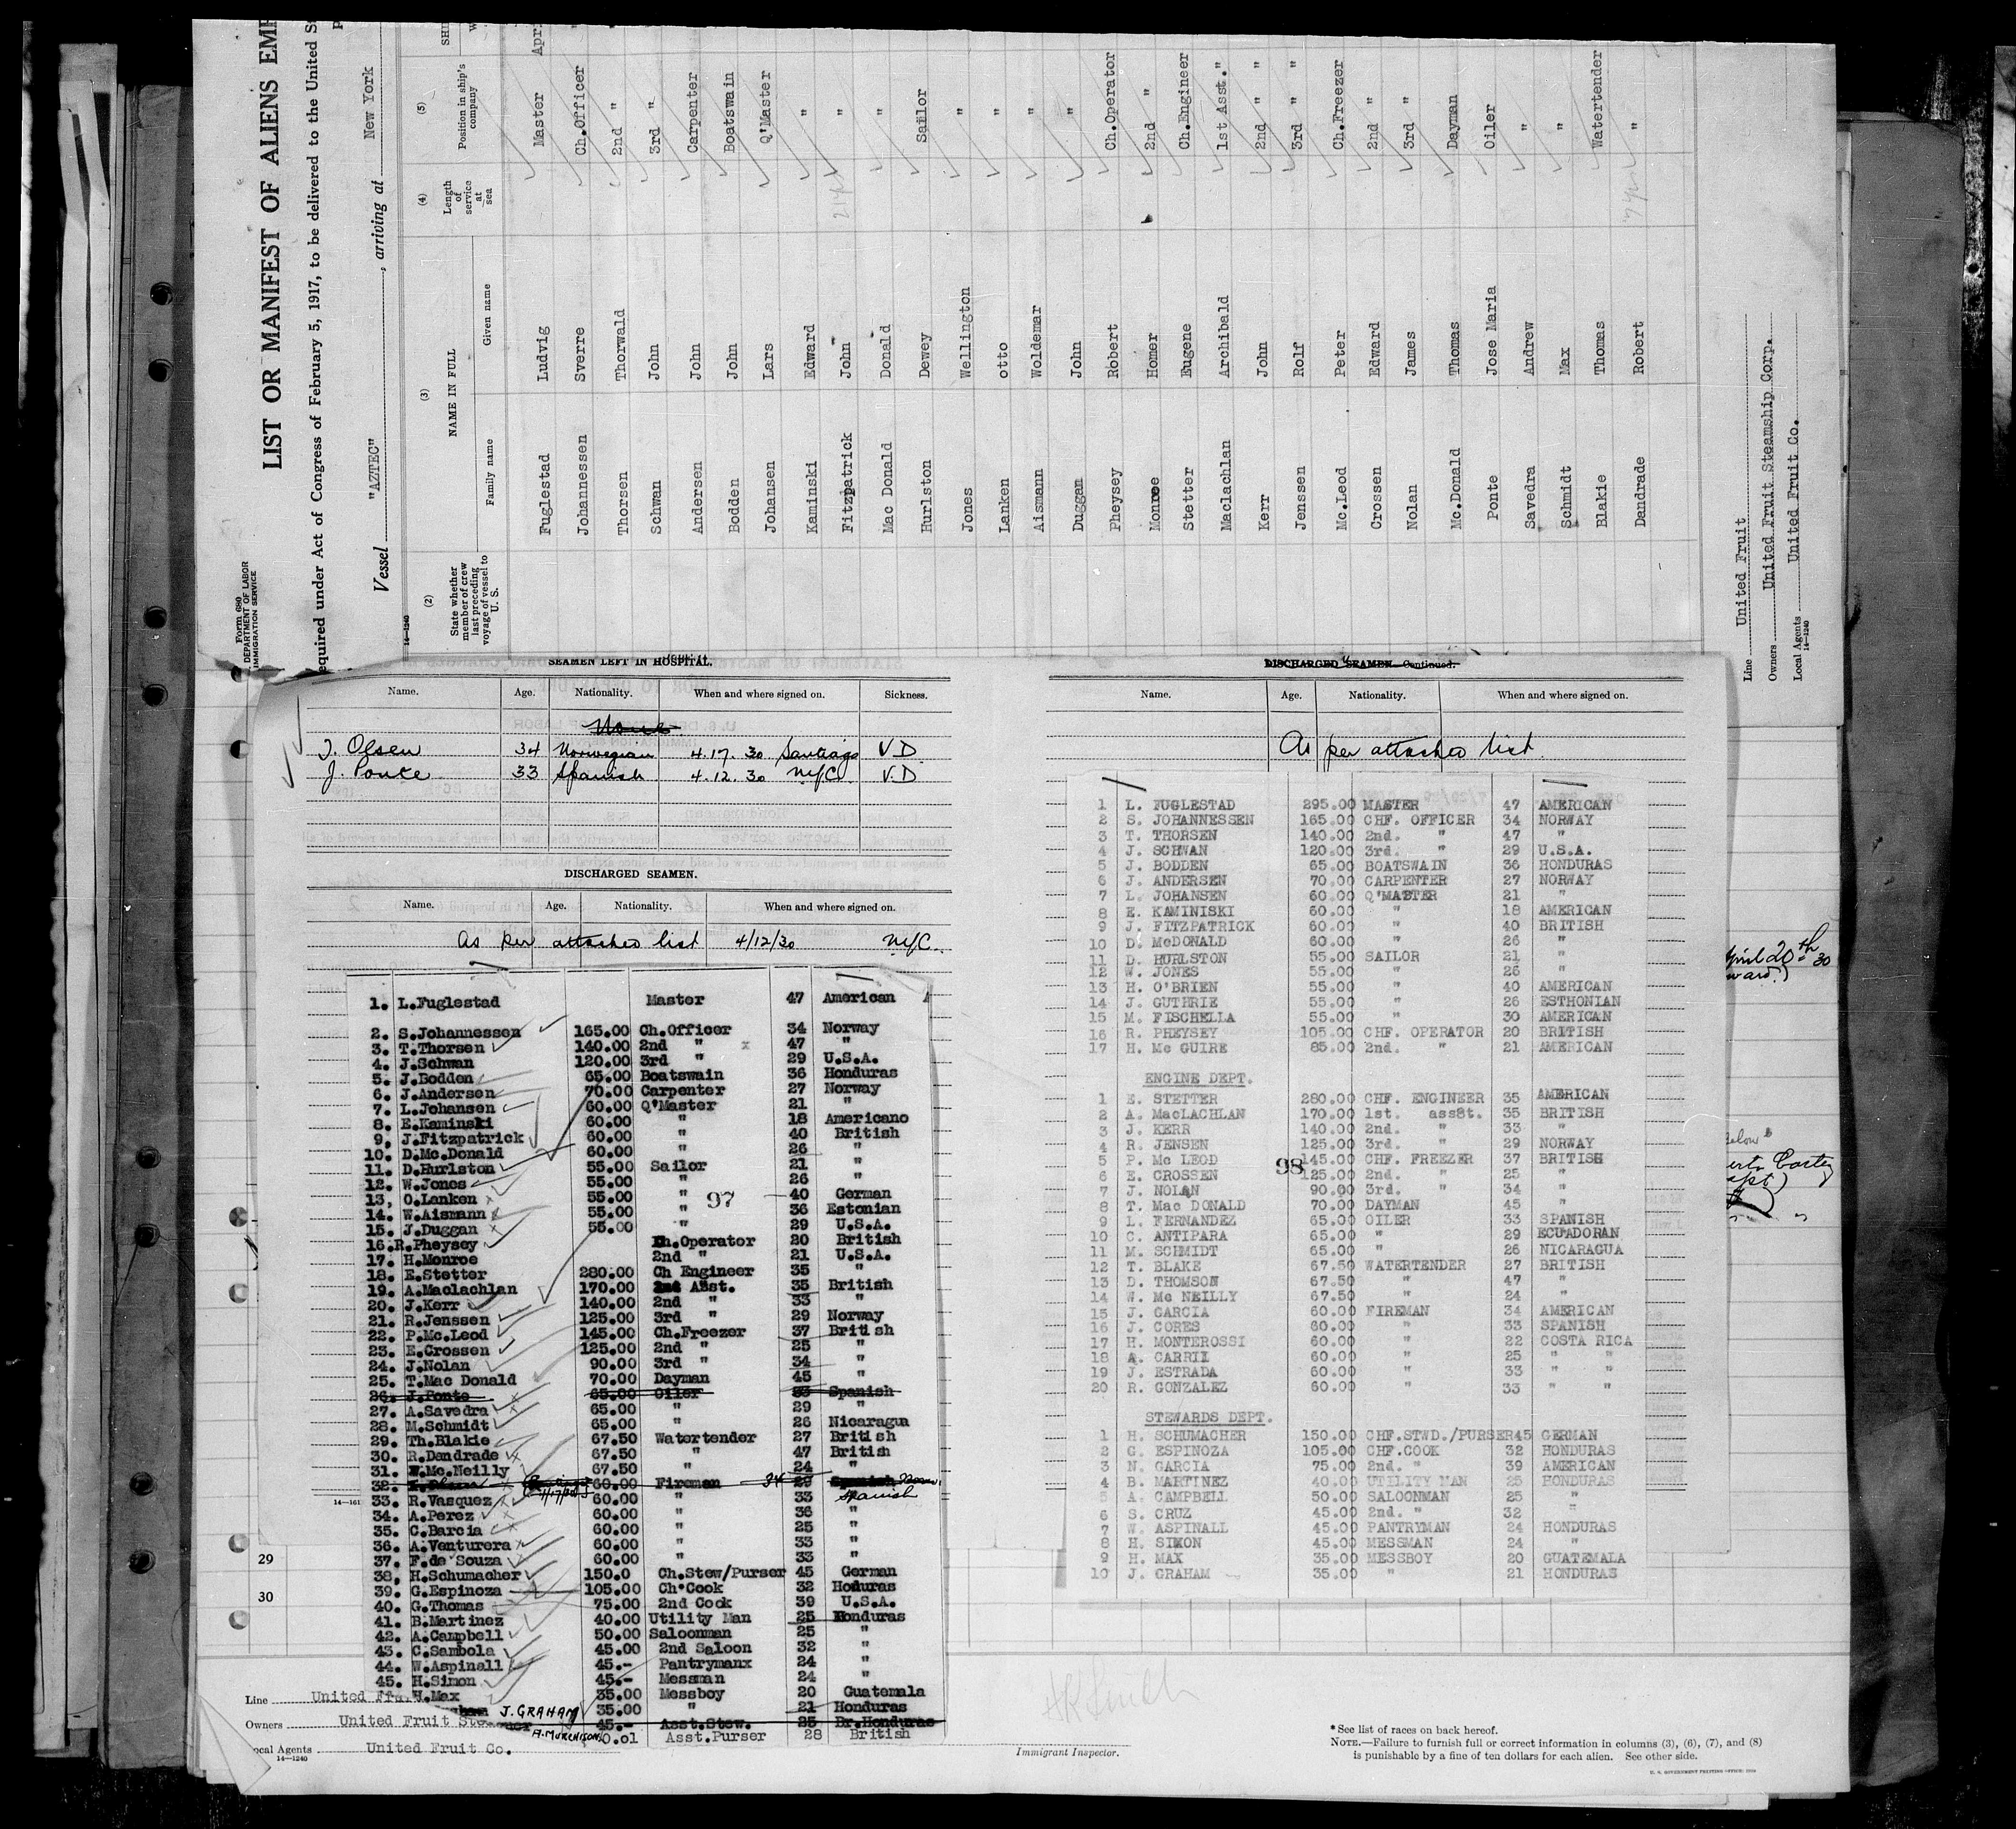 Form 680
DEPARTMENT OF LABOR
IMMIGRATION SERVICE
LIST OR MANIFEST OF ALIENS
equired under Act of Congress of February 5, 1917, to be delivered to the United
Vessel "AZTEC", arriving at New York
14—1240
(2) (3) (4) (5)
State whether member of crew last preceding voyage of vessel to U. S.
NAME IN FULL
Family name Given name
Length of service at sea
Position in ship's company
Fuglestad Ludvig Master
Johannessen Sverre Ch.Officer
Thorsen Thorwald 2nd "
Schwan John 3rd "
Andersen John Carpenter
Bodden John Boatswain
Johansen Lars Q'Master
Kaminski Edward "
Fitzpatrick John "
Mac Donald Donald "
Hurlston Dewey Sailor
Jones Wellington "
Lanken otto "
Aismann Woldemar "
Duggan John "
Pheysey Robert Ch.Operator
Monroe Homer 2nd "
Stetter Eugene Ch.Engineer
Maclachlan Archibald 1st Asst."
Kerr John 2nd " "
Jenssen Rolf 3rd " "
Mc.Leod Peter Ch.Freezer
Crossen Edward 2nd "
Nolan James 3rd "
Mc.Donald Thomas Dayman
Ponte Jose Maria Oiler
Savedra Andrew "
Schmidt Max "
Blakie Thomas Watertender
Dandrade Robert "
Line United Fruit
Owners United Fruit Steamship Corp.
Local Agents United Fruit Co.
14—1240
SEAMEN LEFT IN HOSPITAL.
Name. Age. Nationality. When and where signed on. Sickness.
None
J. Olsen 34 Norwegian 4.17.30 Santiago V.D
J. Ponte 33 Spanish 4.12.30 N.Y.C. V.D
DISCHARGED SEAMEN.
Name. Age. Nationality. When and where signed on.
As per attached list 4/12/30 N.Y.C.
1. L.Fuglestad Master 47 American
2. S.Johannessen 165.00 Ch.Officer 34 Norway
3. T.Thorsen 140.00 2nd " x 47 "
4. J.Schwan 120.00 3rd " 29 U.S.A.
5. J.Bodden 65.00 Boatswain 36 Honduras
6. J.Andersen 70.00 Carpenter 27 Norway
7. L.Johansen 60.00 Q'Master 21 "
8. E.Kaminski 60.00 " 18 Americano
9, J.Fitzpatrick 60.00 " 40 British
10. D.Mc.Donald 60.00 " 26 "
11. D.Hurlston 55.00 Sailor 21 "
12. W.Jones 55.00 " 26 "
13, O.Lanken 55.00 " 40 German
97
14. W.Aismann 55.00 " 36 Estonian
15. J.Duggan 55.00 " 29 U.S.A.
16.R.Pheysey Ch.Operator 20 British
17. H.Monroe 2nd " 21 U.S.A.
18. E.Stetter 280.00 Ch Engineer 35 "
19. A.Maclachlan 170.00 Asst. 35 British
20. J.Kerr 140.00 2nd " 33 "
21. R.Jenssen 125.00 3rd " 29 Norway
22. P.Mc.Leod 145.00 Ch.Freezer 37 British
23. E.Crossen 125.00 2nd " 25 "
24. J.Nolan 90.00 3rd " 34 "
25. T.Mac Donald 70.00 Dayman 45 "
26. J.Ponte 65.00 Oiler 33 Spanish
27. A.Savedra 65.00 " 29 "
28. M.Schmidt 65.00 " 26 Nicaragua
29. Th.Blakie 67.50 Watertender 27 British
30. R.Dandrade 67.50 " 47 British
31. W.Mc.Neilly 67.50 " 24 "
32. 60.00 Fireman 34 29 Spanish
33. R.Vazquez 60.00 " 33 Spanish
34. A.Perez 60.00 " 36 "
35. C.Barcia 60.00 " 25 "
36. A.Venturera 60.00 " 33 "
37. F.de Souza 60.00 " 33 "
38, H.Schumacher 150.0 Ch.Stew/Purser 45 German
39. G.Espinoza 105.00 Ch.Cook 32 Honduras
40. G.Thomas 75.00 2nd Cook 39 U.S.A.
41. B.Martinez 40.00 Utility Man 25 Honduras
42. A.Campbell 50.00 Saloonman 25 "
43. C.Sambola 45.00 2nd Saloon 32 "
44. W.Aspinall 45.- Pantrymanx 24 "
45. H.Simon 45.- Messman 24 "
H.Max 35.00 Messboy 20 Guatemala
J. GRAHAM 35.00 " 21 Honduras
45.- Asst.Stew. 25 Br.Honduras
A. MURCHISON 0.01 Asst.Purser 28 British
DISCHARGED SEAMEN—Continued.
Name. Age. Nationality. When and where signed on.
As per attached list.
1 L. FUGLESTAD 295.00 MASTER 47 AMERICAN
2 S. JOHANNESSEN 165.00 CHF. OFFICER 34 NORWAY
3 T. THORSEN 140.00 2nd. " 47 "
4 J. SCHWAN 120.00 3rd. " 29 U.S.A.
5 J. BODDEN 65.00 BOATSWAIN 36 HONDURAS
6 J. ANDERSEN 70.00 CARPENTER 27 NORWAY
7 L. JOHANSEN 60.00 Q'MASTER 21 "
8 E. KAMINISKI 60.00 " 18 AMERICAN
9 J. FITZPATRICK 60.00 " 40 BRITISH
10 D. McDONALD 60.00 " 26 "
11 D. HURLSTON 55.00 SAILOR 21 "
12 W. JONES 55.00 " 26 "
13 H. O'BRIEN 55.00 " 40 AMERICAN
14 J. GUTHRIE 55.00 " 26 ESTHONIAN
15 M. FISCHELLA 55.00 " 30 AMERICAN
16 R. PHEYSEY 105.00 CHF. OPERATOR 20 BRITISH
17 H. Mc GUIRE 85.00 2nd. " 21 AMERICAN
ENGINE DEPT.
1 E. STETTER 280.00 CHF. ENGINEER 35 AMERICAN
2 A. MacLACHLAN 170.00 1st. ass8t. 35 BRITISH
3 J. KERR 140.00 2nd. " 33 "
4 R. JENSEN 125.00 3rd. " 29 NORWAY
5 P. Mc LEOD 145.00 CHF. FREEZER 37 BRITISH
98
6 E. CROSSEN 125.00 2nd. " 25 "
7 J. NOLAN 90.00 3rd. " 34 "
8 T. Mac DONALD 70.00 DAYMAN 45 "
9 L. FERNANDEZ 65.00 OILER 33 SPANISH
10 C. ANTIPARA 65.00 " 29 ECUADORAN
11 M. SCHMIDT 65.00 " 26 NICARAGUA
12 T. BLAKE 67.50 WATERTENDER 27 BRITISH
13 D. THOMSON 67.50 " 47 "
14 W. Mc NEILLY 67.50 " 24 "
15 J. GARCIA 60.00 FIREMAN 34 AMERICAN
16 J. CORES 60.00 " 33 SPANISH
17 H. MONTEROSSI 60.00 " 22 COSTA RICA
18 A. CARRII 60.00 " 25 " "
19 J. ESTRADA 60.00 " 33 " "
20 R. GONZALEZ 60.00 " 33 " "
STEWARDS DEPT.
1 H. SCHUMACHER 150.00 CHF.STWD./PURSER45 GERMAN
2 G. ESPINOZA 105.00 CHF.COOK 32 HONDURAS
3 N. GARCIA 75.00 2nd. " 39 AMERICAN
4 B. MARTINEZ 40.00 UTILITY MAN 25 HONDURAS
5 A. CAMPBELL 50.00 SALOONMAN 25 "
6 S. CRUZ 45.00 2nd. " 32 "
7 W. ASPINALL 45.00 PANTRYMAN 24 HONDURAS
8 H. SIMON 45.00 MESSMAN 24 "
9 H. MAX 35.00 MESSBOY 20 GUATEMALA
10 J. GRAHAM 35.00 " 21 HONDURAS
April 20th 30
29
30
Line United
Owners United Fruit
Local Agents United Fruit Co.
14—1240
Immigrant Inspector.
*See list of races on back hereof.
NOTE.—Failure to furnish full or correct information in columns (3), (6), (7), and (8)
is punishable by a fine of ten dollars for each alien. See other side.